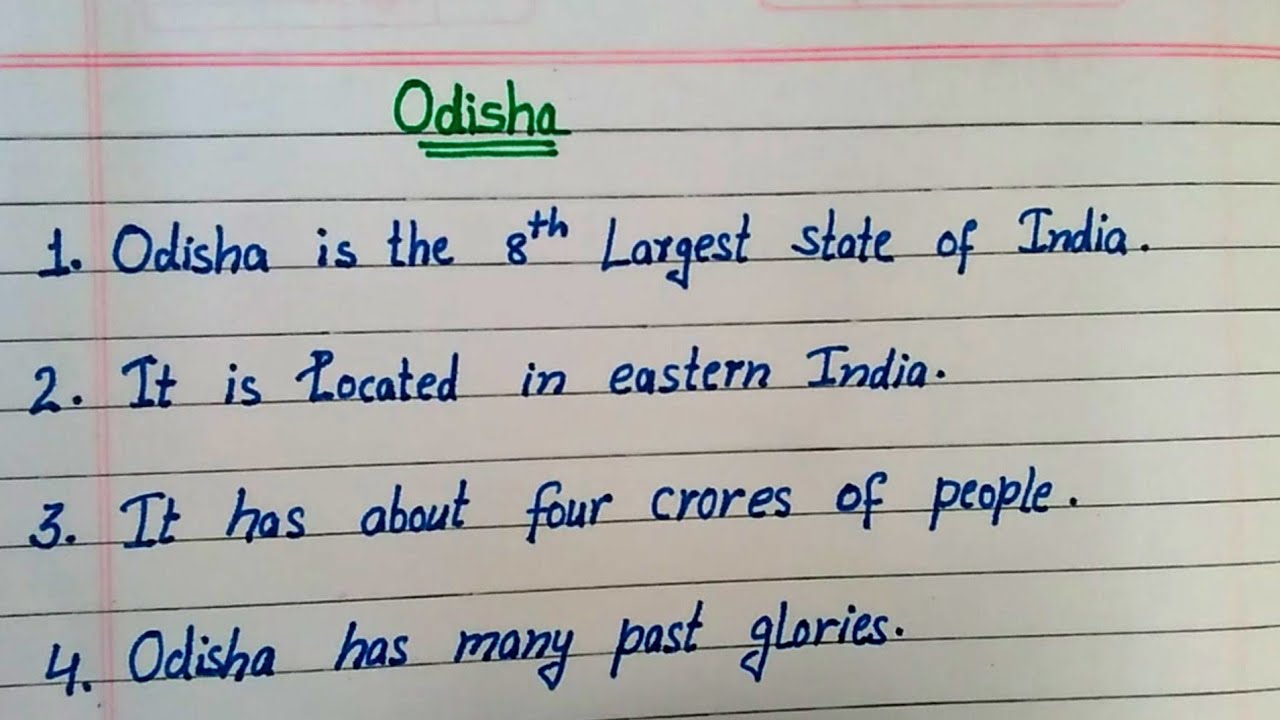 Odisha
1. Odisha is the 8th Largest state of India.
2. It is Located in eastern India.
3. It has about four crores of people.
4. Odisha has many past glories.